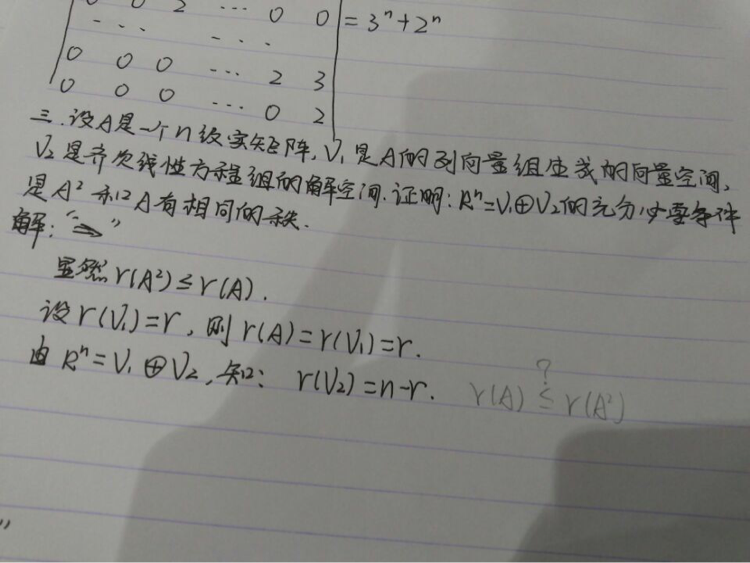 0 0 2 … 0 0 = 3ⁿ+2ⁿ
0 0 0 … 2 3
0 0 0 … 0 2
三.设A是一个n级实矩阵, V₁是A的列向量组生成的向量空间,
V₂是齐次线性方程组的解空间.证明: Rⁿ=V₁⊕V₂的充分必要条件
是A²和A有相同的秩.
解: "⇒"
显然r(A²)≤r(A).
设r(V₁)=r, 则r(A)=r(V₁)=r.
由Rⁿ=V₁⊕V₂,知: r(V₂)=n-r. r(A) ≤? r(A²)
"